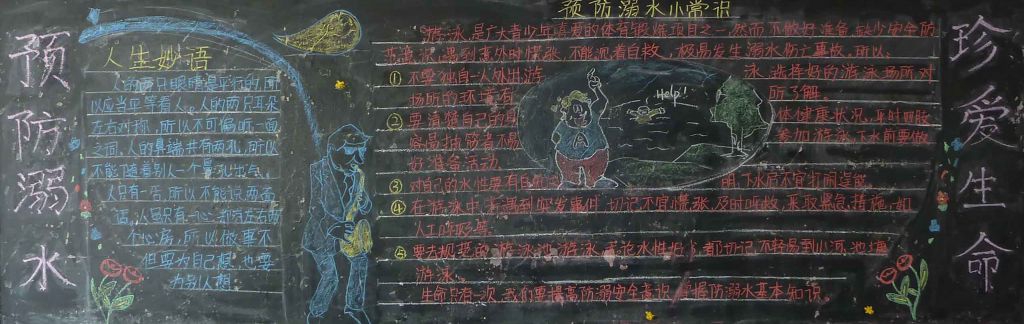 预防溺水
珍爱生命
人生妙语
人的两只眼睛是平行的,所
以应当平等看人。人的两只耳朵
左右对称,所以不可偏听一面
之词,人的鼻端共有两孔,所以
不能随着别人一个鼻孔出气。
人只有一舌,所以不能说两面
话,人
只有一心,
左右两
个心房,所以做事不
但要为自己想,也要
为别人想。
预防溺水小常识
游泳,是广大青少年喜爱的体育锻炼项目之一,然而不做好准备、缺少安全防
范意识,遇到意外时慌张、不能沉着自救,极易发生溺水伤亡事故,所以:
① 不要独自一人外出游泳,选择好的游泳场所,对
场所的环境有所了解。
② 要清楚自己的身体健康状况,平时四肢
参加游泳,下水前要做
好准备活动
③ 对自己的水性要有自知之明,下水后不宜打闹逞能。
④ 在游泳中,若遇到突发事件,切记不宜慌张,及时呼救,采取紧急措施,如
人工呼吸等。
⑤ 要去规范的游泳池游泳,无论水性好
,都切记不轻易到小河、池塘
游泳。
生命只有一次,我们要提高防溺安全意识,掌握防溺水基本知识。
Help!